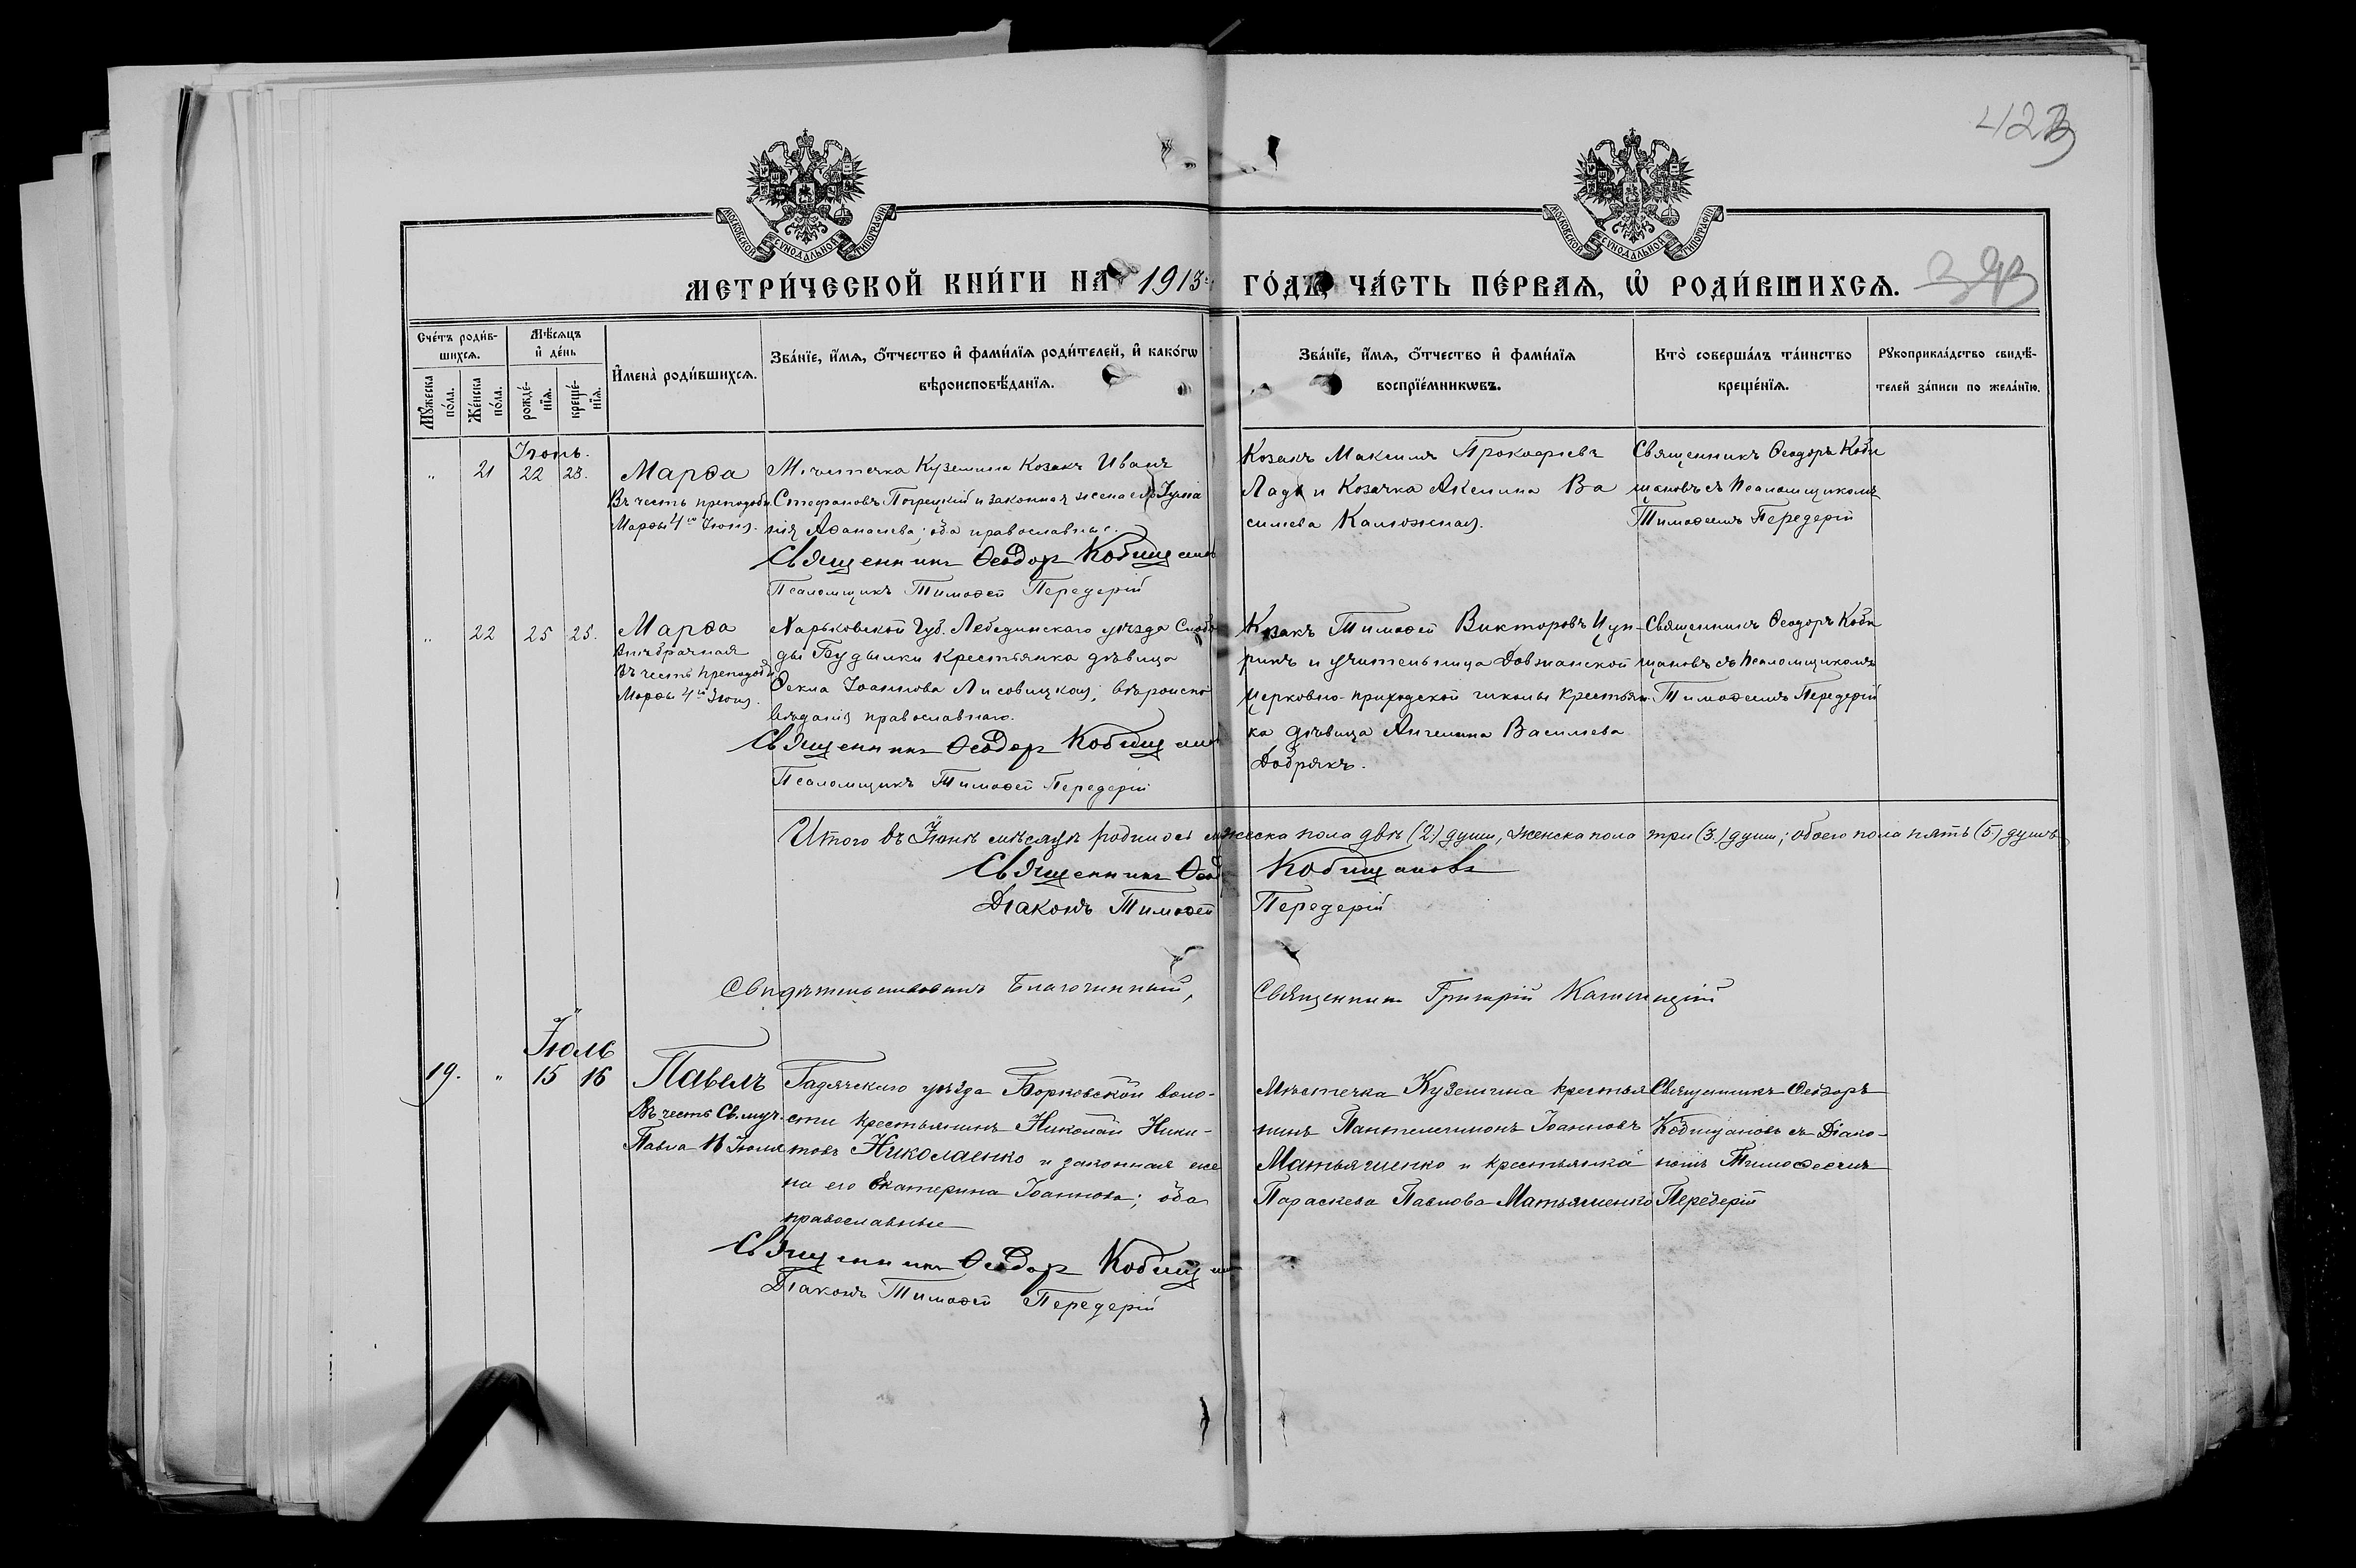 423
МОСКОВСКОЙ СѴНОДАЛЬНОЙ ТИПОГРАФІИ
МОСКОВСКОЙ СѴНОДАЛЬНОЙ ТИПОГРАФІИ
МЕТРИ́ЧЕСКОЙ КНИ́ГИ НА 1913 ГО́ДЪ, ЧА́СТЬ ПЕ́РВАѦ, Ѡ҆ РОДИ́ВШИХСѦ.
Сче́тъ роди́в-
шихсѧ.
Мѣ́сѧцъ
и҆ де́нь
Мꙋ́жеска по́ла.
Же́нска по́ла.
рожде́-нїѧ.
креще́-нїѧ.
И҆мена̀ роди́вшихсѧ.
Зва́нїе, и҆́мѧ, ѻ҆́тчество и҆ фами́лїѧ роди́телей, и҆ како́гѡ
вѣроисповѣ́данїѧ.
Зва́нїе, и҆́мѧ, ѻ҆́тчество и҆ фами́лїѧ
воспрїе́мникѡвъ.
Кто̀ соверша́лъ та́инство
креще́нїѧ.
Рꙋкоприкла́дство свидѣ́-
телей за́писи по жела́нїю.
Іюнь.
" 21 22 23.
Марѳа
Въ честь преподобн.
Марѳы 4го Іюня.
Мѣстечка Куземина Козакъ Иванъ
Стефановъ Погрецкій и законная жена его Іуліа
нія Аѳанасіева; оба православные.
Священникъ Ѳеодоръ Кобищановъ
Псаломщикъ Тимоѳей Передерій
Козакъ Максимъ Прокофіевъ
Лада и Козачка Акилина Ва
силіева Калюжная.
Священникъ Ѳеодоръ Коби
щановъ съ Псаломщикомъ
Тимоѳеемъ Передерій
" 22 25 25.
Марѳа
Внѣбрачная
Въ честь преподобн
Марѳы 4го Іюня.
Харьковской Губ. Лебединскаго уѣзда Слобо
ды Будылки крестьянка дѣвица
Ѳекла Іоаннова Лисовицкая; вѣроиспо
вѣданія православнаго.
Священникъ Ѳеодоръ Кобищановъ
Псаломщикъ Тимоѳей Передерій
Козакъ Тимоѳей Викторовъ Цуп-
рикъ и учительница Довжанской
церковно-приходской школы крестьян-
ка дѣвица Ангелина Василіева
Добрякъ.
Священникъ Ѳеодоръ Коби
щановъ съ Псаломщикомъ
Тимоѳеемъ Передерій
Итого въ Іюнѣ мѣсяцѣ родилось мужеска пола двѣ (2) души, женска пола три (3) души; обоего пола пять (5) душъ
Священникъ Ѳеод Кобищановъ
Діаконъ Тимоѳей Передерій
Свидѣтельствовалъ Благочинный, Священникъ Григорій
Іюль
19. " 15 16
Павелъ
Въ честь Св. муч.
Павла 16 Іюля
Гадячскаго уѣзда Борковской воло-
сти крестьянинъ Николай Ники-
товъ Николаенко и законная же
на его Екатерина Іоаннова; оба
православные
Священникъ Ѳеодоръ Кобищановъ
Діаконъ Тимоѳей Передерій
Мѣстечка Куземина крестья
нинъ Пантелеимонъ Іоанновъ
Матьяшенко и крестьянка
Параскева Павлова Матьяшенко
Священникъ Ѳеодоръ
Кобищановъ съ Діако-
номъ Тимоѳеемъ
Передерій